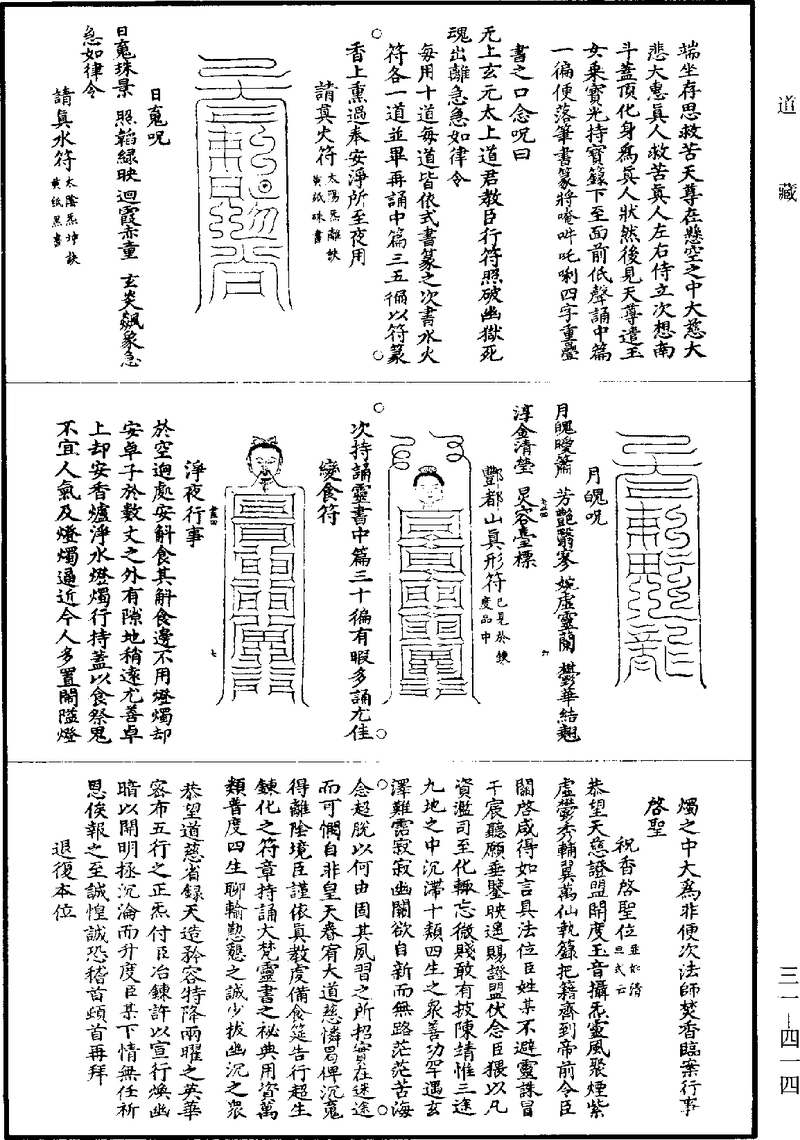 道藏
三一—四一四
端坐存思救苦天尊在懸空之中大慈大
悲大惠真人救苦真人左右侍立次想南
斗蓋頂化身為真人狀然後見天尊遣玉
女乘寶光持寶籙下至面前低聲誦中篇
一徧便落筆書篆將唵吽吒唎四字重疊
書之口念呪曰
无上玄元太上道君教臣行符照破幽獄死
魂出離急急如律令
每用十道每道皆依式書篆之次書水火
符各一道並畢再誦中篇三五徧以符篆
香上熏過奉安淨所至夜用
請真火符 太陽炁離訣 黃紙硃書
日䰟呪
日䰟珠景 照韜綠映 迴霞赤童 玄炎飈象急
急如律令
請真水符 太陰炁坤訣 黃紙黑書
月魄呪
月魄曖簫 芳艷翳寥 婉虛靈蘭 鬱華結翹
淳金清瑩 炅容臺標
酆都山真形符 已見於鍊度品中
次持誦靈書中篇三十徧有暇多誦尤佳
變食符
淨夜行事
於空迥處安斛食其斛食邊不用燈燭却
安卓子於數丈之外有隙地稍遠尤善卓
上却安香爐淨水燈燭行持蓋以食祭鬼
不宜人氣及燈燭逼近今人多置鬧隘燈
燭之中大為非便次法師焚香臨案行事
啓聖
祝香啓聖位 並如清旦式云
恭望天慈證盟開度玉音攝炁靈風聚煙紫
虛鬱秀輔翼萬仙執籙把籍齊到帝前令臣
關啓咸得如言具法位臣姓某不避靈誅冒
干宸聽願垂鑒映遙賜證盟伏念臣猥以凡
資濫司至化輒忘微賤敢有披陳請惟三途
九地之中沉滯十類四生之衆善功罕遇玄
澤難霑寂寂幽關欲自新而無路茫茫苦海
念超脫以何由固其夙習之所招實在迷途
而可憫自非皇天眷宥大道慈憐曷俾沉䰟
得離陰境臣謹依真教虔備食筵告行超生
鍊化之符章持誦大梵靈書之祕典用資萬
類普度四生聊輸懃懇之誠少拔幽沉之衆
恭望道慈省錄天造矜容特降兩曜之英華
密布五行之正炁付臣冶鍊許以宣行煥幽
暗以開明拯沉淪而升度臣某下情無任祈
恩俟報之至誠惶誠恐稽首頓首再拜
退復本位